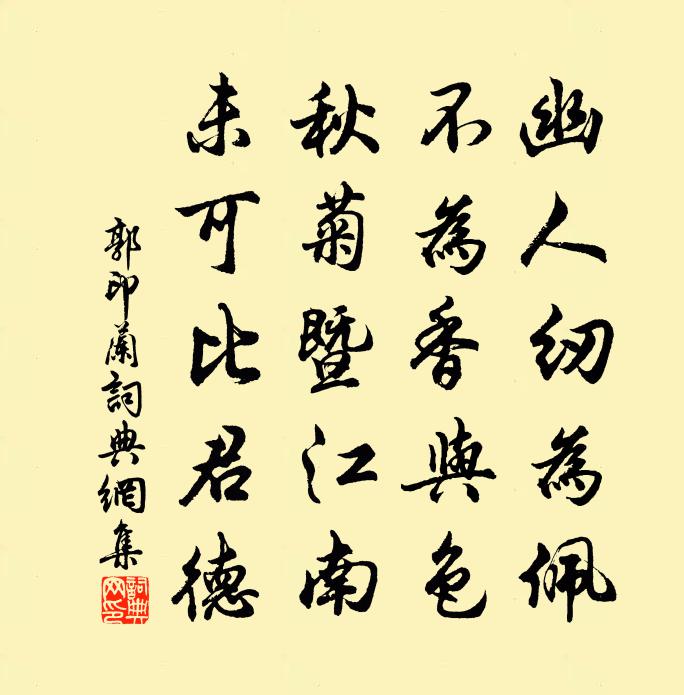 幽人紉為佩
不為香與色
秋菊暨江南
未可比君德
郭印蘭詞典網集
詞典網印